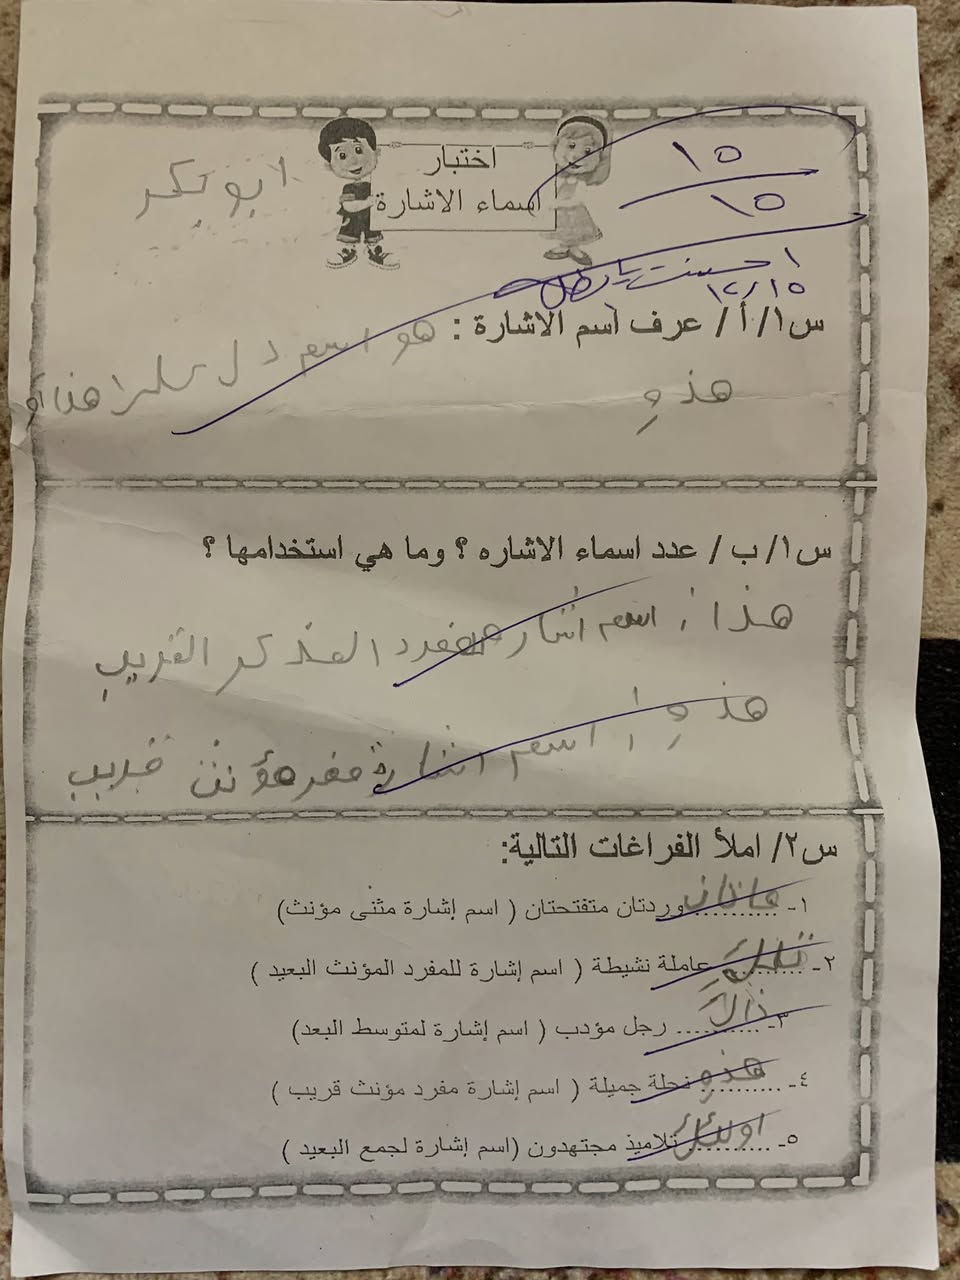 اختبار
اسماء الاشارة
ابو بكر
١٥
١٥
احسنت يا بطل
١٢/١٥
س١/ أ / عرف اسم الاشارة : هو اسم دل على هذا أو
هذهِ
س١/ ب / عدد اسماء الاشاره ؟ وما هي استخدامها ؟
هذا : اسم اشاره المفرد المذكر القريب
هذهِ : اسم اشارة مفر مؤنث قريب
س٢/ املأ الفراغات التالية:
١- هاتان وردتان متفتحتان ( اسم إشارة مثنى مؤنث)
٢- تلكَ عاملة نشيطة ( اسم إشارة للمفرد المؤنث البعيد )
٣- ذاكَ رجل مؤدب ( اسم إشارة لمتوسط البعد)
٤- هذهِ نحلة جميلة ( اسم إشارة مفرد مؤنث قريب )
٥- اولئكَ تلاميذ مجتهدون (اسم إشارة لجمع البعيد )